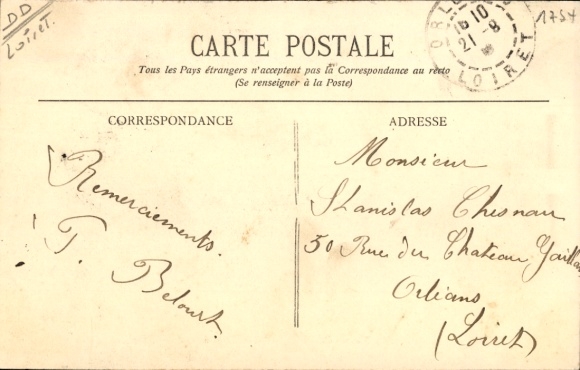 DD
Loiret.
1754
16 10
21-8
LOIRET
CARTE POSTALE
Tous les Pays étrangers n'acceptent pas la Correspondance au recto
(Se renseigner à la Poste)
CORRESPONDANCE
Remerciements.
T. Belourt.
ADRESSE
Monsieur
Stanislas Chesnau
50 Rue du Chateau Gaillar
Orléans
(Loiret)